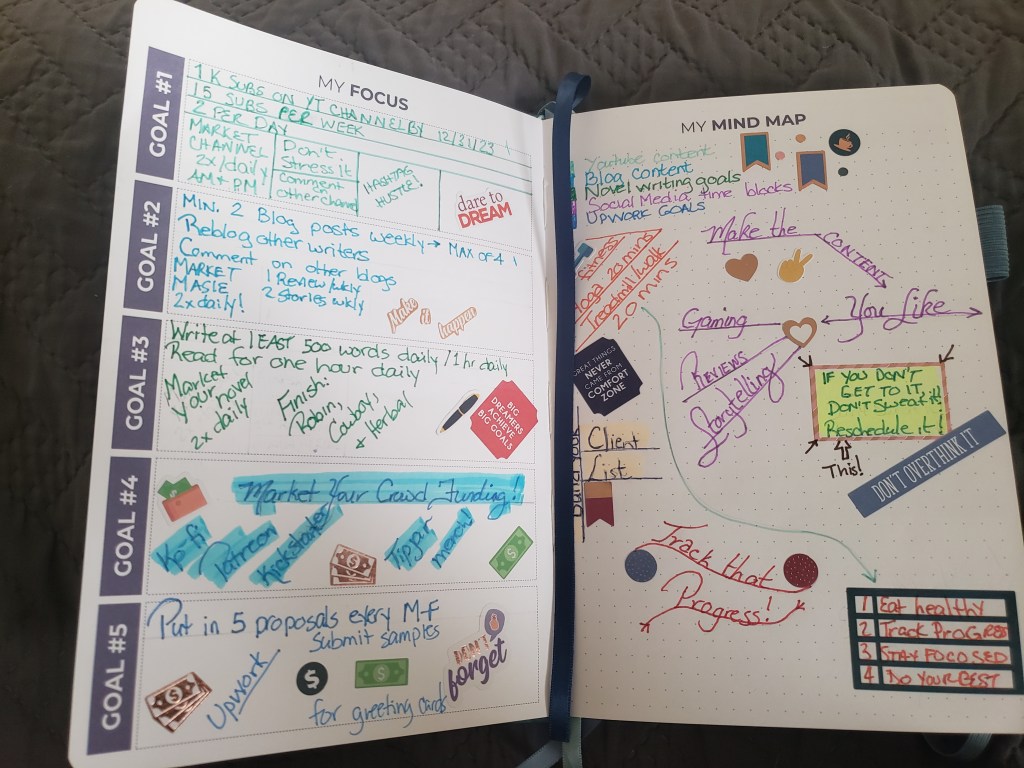 MY FOCUS
GOAL #1
1K SUBS ON YT CHANNEL BY 12/31/23
15 SUBS PER WEEK
2 PER DAY
MARKET
CHANNEL
2x/daily
AM + PM!
Don't
Stress it
Comment
other channel
HASHTAG
HUSTLE!
dare to
DREAM
GOAL #2
MIN. 2 Blog posts weekly → MAX OF 4
Reblog other writers
Comment on other blogs
MARKET
MASIE
2x daily!
1 Review/wkly
2 Stories wkly
Make
it
happen
GOAL #3
Write at LEAST 500 words daily / 1 hr daily
Read for one hour daily
Market
your novel
2x daily
Finish:
Robin,
Cowboy,
+ Herbal
BIG
DREAMERS
ACHIEVE
BIG GOALS
GOAL #4
Market Your Crowd Funding!
Ko-fi
Patreon
Kickstarter
Tipper
merch!
GOAL #5
Put in 5 proposals every M-F
Submit samples
Upwork
for greeting cards
DON'T
forget
MY MIND MAP
Youtube content
Blog content
Novel writing goals
Social Media time blocks
UPWORK GOALS
Make the
CONTENT
You Like
Gaming
REVIEWS
Storytelling
Fitness
Yoga 20 mins
Treadmill/walk
20 mins
GREAT THINGS
NEVER
CAME FROM
COMFORT
ZONE
IF YOU DON'T
GET TO IT,
DON'T SWEAT it!
Reschedule it!
This!
DON'T OVERTHINK IT
Client
List
Track that
Progress!
1 Eat healthy
2 Track PROGRESS
3 STAY FOCOSED
4 DO YOUR BEST